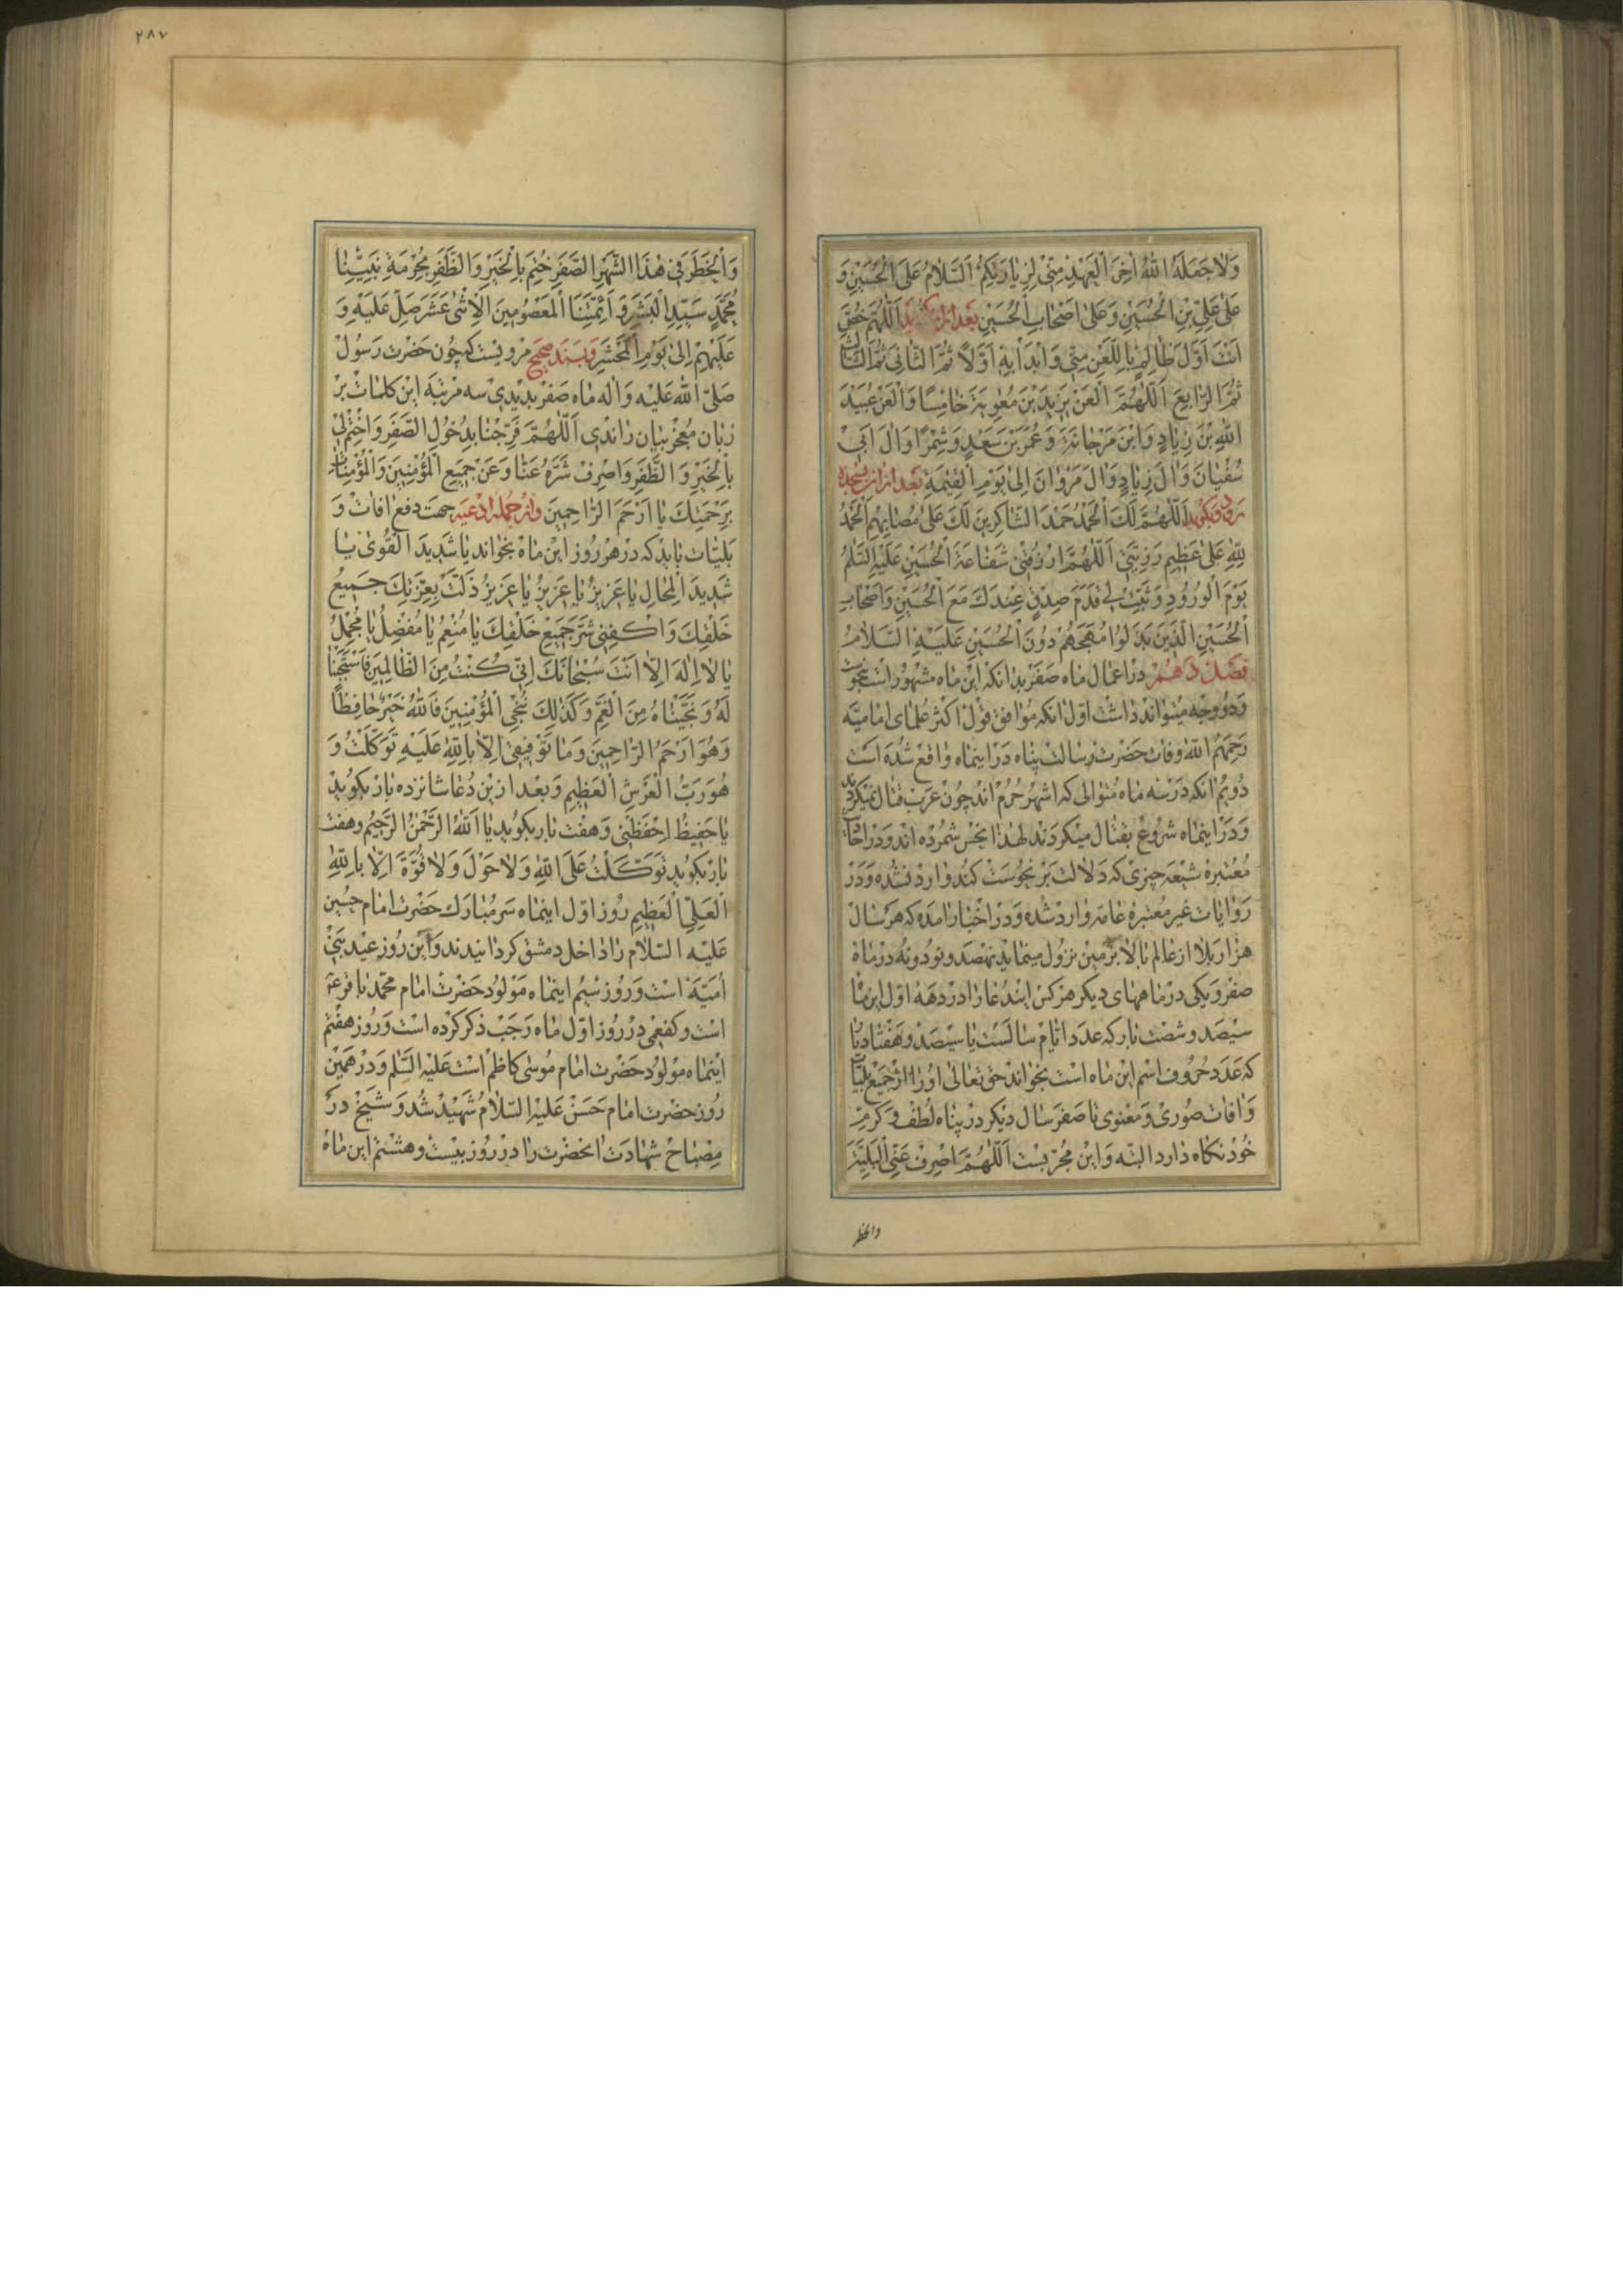 وَلَا جَعَلَهُ اللّٰهُ اٰخِرَ الْعَهْدِ مِنّی لِزِیٰارَتِکُمْ اَلسَّلٰامُ عَلَی الْحُسَیْنِ وَ
عَلیٰ عَلِیِّ بْنِ الْحُسَیْنِ وَعَلیٰ اَصْحٰابِ الْحُسَیْنِ بَعْد ازان بگوید اَللّٰهُمَّ خُصَّ
اَنْتَ اَوَّلَ ظٰالِمٍ بِاللَّعْنِ مِنّی وَابْدَاْ بِهِ اَوَّلاً ثُمَّ الثّٰانِیَ ثُمَّ الثّٰالِثَ
ثُمَّ الرّٰابِعَ اَللّٰهُمَّ الْعَنْ یَزیٖدَ بْنَ مُعٰوِیَةَ خٰامِسًا وَالْعَنْ عُبَیْدَ
اللّٰهِ بْنَ زِیٰادٍ وَابْنَ مَرْجٰانَةَ وَعُمَرَ بْنَ سَعْدٍ وَشِمْرًا وَاٰلَ اَبیٖ
سُفْیٰانَ وَاٰلَ زِیٰادٍ وَاٰلَ مَرْوٰانَ اِلیٰ یَوْمِ الْقِیٰمَةِ بَعْد ازان بسجده
رود و بگوید اَللّٰهُمَّ لَكَ الْحَمْدُ حَمْدَ الشّٰاکِریٖنَ لَكَ عَلیٰ مُصٰابِهِمْ اَلْحَمْدُ
لِلّٰهِ عَلیٰ عَظیٖمِ رَزِیَّتیٖ اَللّٰهُمَّ ارْزُقْنیٖ شَفٰاعَةَ الْحُسَیْنِ عَلَیْهِ السَّلٰمُ
یَوْمَ الْوُرُودِ وَثَبِّتْ لیٖ قَدَمَ صِدْقٍ عِنْدَكَ مَعَ الْحُسَیْنِ وَاَصْحٰابِ
الْحُسَیْنِ الَّذیٖنَ بَذَلُوا مُهَجَهُمْ دُونَ الْحُسَیْنِ عَلَیْهِ السَّلٰامُ
فصل دهم در اعمال ماه صفر بدانکه این ماه مشهور است بنحوست
و دو وجه میتواند داشت اوّل انکه موافق قول اکثر علمای امامیّه
رحمهم اللّٰه وفات حضرت رسالت پناه در اینماه واقع شده است
دویم انکه در سه ماه متوالی که اشهر حرم اند چون عرب قتال نمیکردند
و در اینماه شروع بقتال میکردند لهذا نحس شمرده اند و در احادیث
معتبرهٔ شیعه چیزی که دلالت بر نحوست کند وارد نشده و در
روایات غیر معتبرهٔ عامّه وارد شده و در اخبار امده که هر سال
هزار بلا از عالم بالا بر زمین نزول مینماید نهصد و نود و نه در ماه
صفر و یکی در ماههای دیکر هر کس این دعا را در دههٔ اوّل این ماه
سیصد و شصت بار که عدد ایّام سالست یا سیصد و هفتاد بار
که عدد حروف اسم این ماه است بخواند حق تعالی او را از جمیع بلیّات
و افات صوری و معنوی تا صفر سال دیکر در پناه لطف و کرم
خود نکاه دارد البتّه و این مجرّبست اَللّٰهُمَّ اصْرِفْ عَنِّی الْبَلِیَّةَ
والخطر
٢٨٧
وَالْخَطَرَ فیٖ هٰذَا الشَّهْرِ الصَّفَرِ خُتِمَ بِالْخَیْرِ وَالظَّفَرِ بِحُرْمَةِ نَبِیِّنٰا
مُحَمَّدٍ سَیِّدِ الْبَشَرِ وَ اَئِمَّتِنَا الْمَعْصُومیٖنَ الْاِثْنیٰ عَشَرَ صَلِّ عَلَیْهِ وَ
عَلَیْهِمْ اِلیٰ یَوْمِ الْمَحْشَرِ و بسند صحیح مرویست که چون حضرت رسول
صلّی اللّٰه علیه واله ماه صفر بدیدی سه مرتبه این کلمات بر
زبان معجز بیان راندی اَللّٰهُمَّ فَرِّحْنٰا بِدُخُولِ الصَّفَرِ وَاخْتِمْ لیٖ
بِالْخَیْرِ وَالظَّفَرِ وَاصْرِفْ شَرَّهُ عَنّٰا وَعَنْ جَمیٖعِ الْمُؤْمِنیٖنَ وَالْمُؤْمِنٰاتِ
بِرَحْمَتِكَ یٰا اَرْحَمَ الرّٰاحِمیٖنَ و از جمله ادعیه جهت دفع افات و
بلیّات باید که در هر روز این ماه بخواند یٰا شَدیٖدَ الْقُویٰ یٰا
شَدیٖدَ الْمِحٰالِ یٰا عَزیٖزُ یٰا عَزیٖزُ یٰا عَزیٖزُ ذَلَّتْ بِعِزَّتِكَ جَمیٖعُ
خَلْقِكَ وَاکْفِنیٖ شَرَّ جَمیٖعِ خَلْقِكَ یٰا مُنْعِمُ یٰا مُفْضِلُ یٰا مُجْمِلُ
یٰا لٰا اِلٰهَ اِلّٰا اَنْتَ سُبْحٰانَكَ اِنّیٖ کُنْتُ مِنَ الظّٰالِمیٖنَ فَاسْتَجَبْنٰا
لَهُ وَنَجَّیْنٰاهُ مِنَ الْغَمِّ وَکَذٰلِكَ نُنْجِی الْمُؤْمِنیٖنَ فَاللّٰهُ خَیْرٌ حٰافِظًا
وَهُوَ اَرْحَمُ الرّٰاحِمیٖنَ وَمٰا تَوْفیٖقیٖ اِلّٰا بِاللّٰهِ عَلَیْهِ تَوَکَّلْتُ وَ
هُوَ رَبُّ الْعَرْشِ الْعَظیٖمِ و بعد ازین دعا شانزده بار بکوید
یٰا حَفیٖظُ احْفَظْنیٖ و هفت بار بکوید یٰا اَللّٰهُ الرَّحْمٰنُ الرَّحیٖمُ و هفت
بار بکوید تَوَکَّلْتُ عَلَی اللّٰهِ وَلٰا حَوْلَ وَلٰا قُوَّةَ اِلّٰا بِاللّٰهِ
الْعَلِیِّ الْعَظیٖمِ روز اوّل اینماه سر مبارك حضرت امام حسین
علیه السّلام را داخل دمشق کردانیدند و این روز عید بنی
امیّه است و روز سیُم اینماه مولود حضرت امام محمّد باقر ع
است و کفعمی در روز اوّل ماه رجب ذکر کرده است و روز هفتم
اینماه مولود حضرت امام موسی کاظم است علیه السّلم و در همین
روز حضرت امام حسن علیه السّلام شهید شد و شیخ در
مصباح شهادت انحضرت را در روز بیست و هشتم این ماه